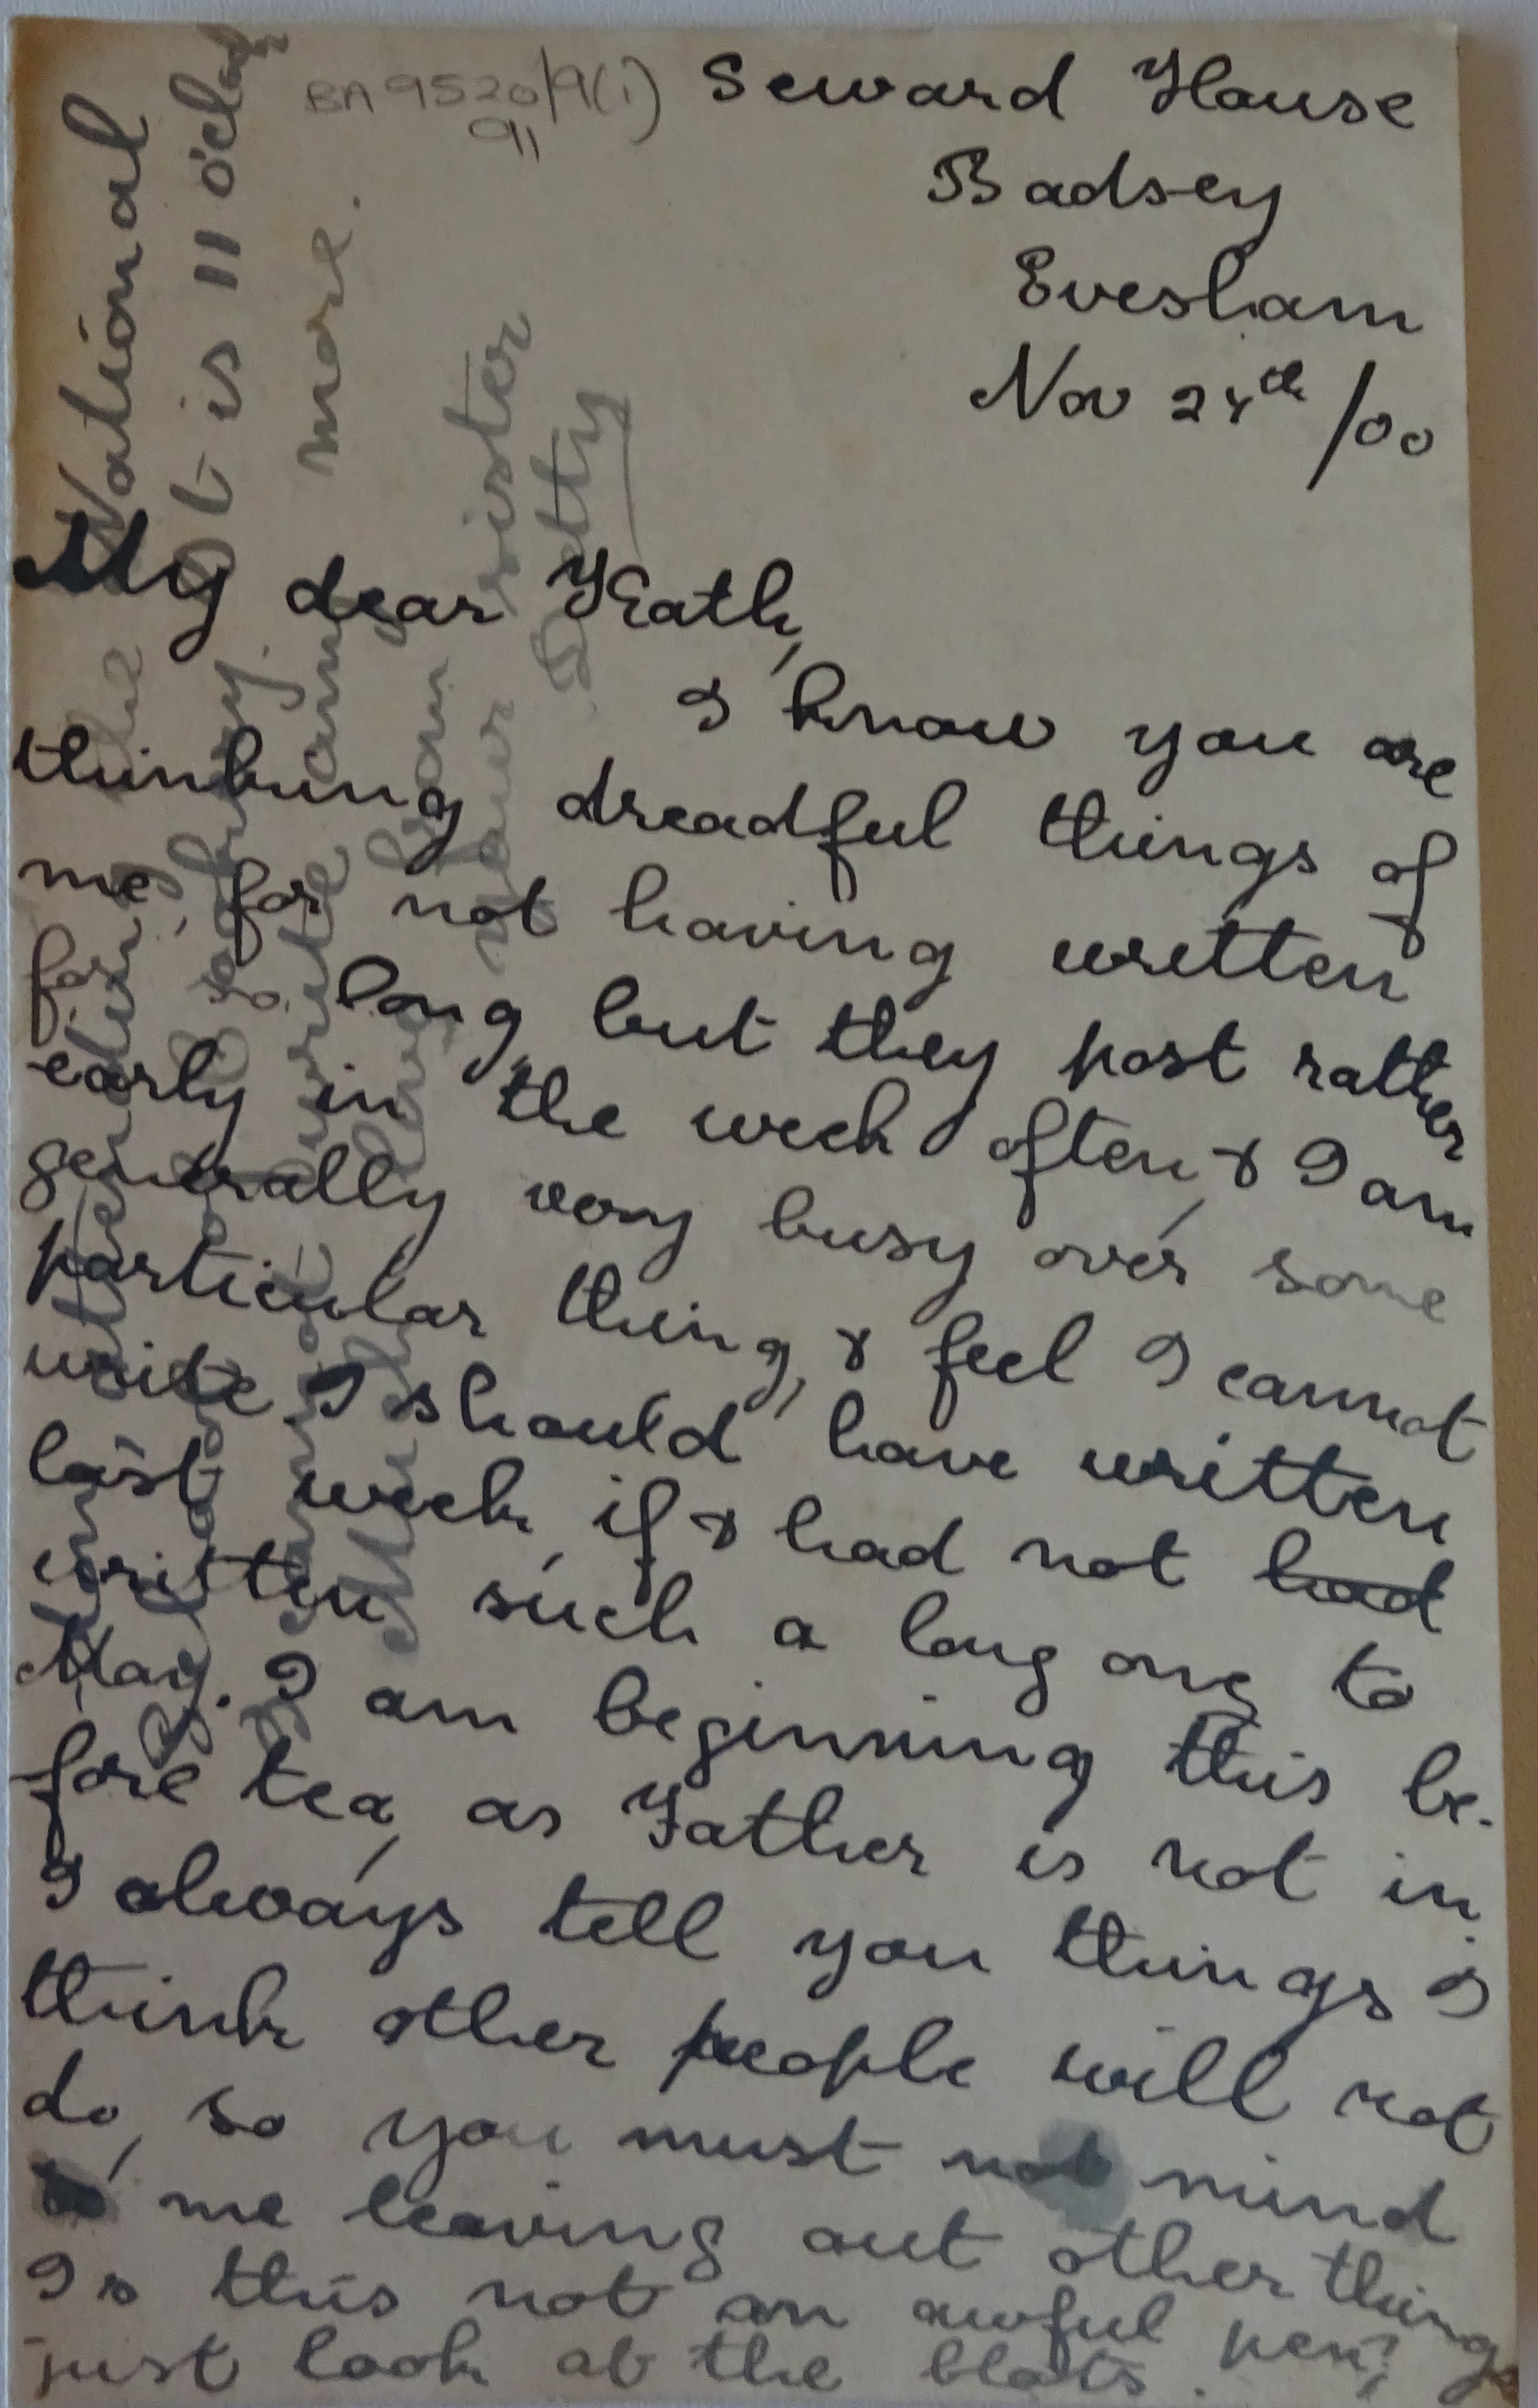 BA 9520/9(i)
91
Seward House
Badsey
Evesham
Nov 24th /00
My dear Kath,
I know you are
thinking dreadful things of
me, for not having written
for so long, but they post rather
early in the week often, & I am
generally very busy over some
particular thing, & feel I cannot
write. I should have written
last week, if I had not had
written such a long one to
May. I am beginning this be-
fore tea, as Father is not in.
I always tell you things I
think other people will not
do, so you must not mind
me leaving out other things
Is this not an awful pen?
just look at the blots.
the National
It is 11 o'clock
more.
Much love from
your sister
Betty